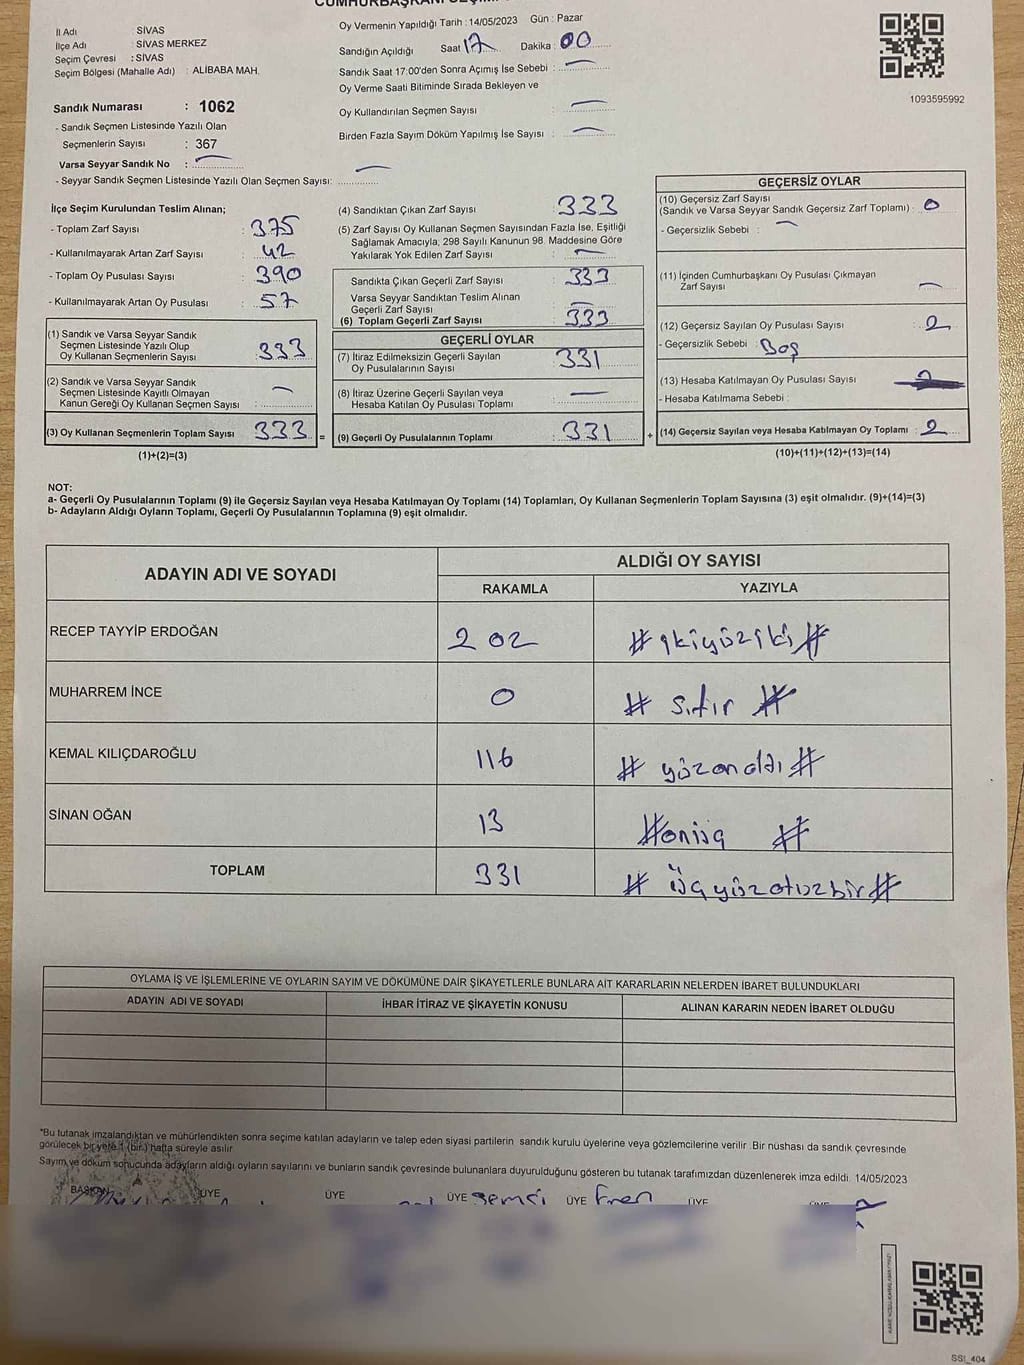 İl Adı : SİVAS
İlçe Adı : SİVAS MERKEZ
Seçim Çevresi : SİVAS
Seçim Bölgesi (Mahalle Adı) : ALİBABA MAH.
Oy Vermenin Yapıldığı Tarih : 14/05/2023 Gün : Pazar
Sandığın Açıldığı Saat 17 Dakika : 00
Sandık Saat 17:00'den Sonra Açımış İse Sebebi : —
Oy Verme Saati Bitiminde Sırada Bekleyen ve
Oy Kullandırılan Seçmen Sayısı —
Birden Fazla Sayım Döküm Yapılmış İse Sayısı : —
1093595992
Sandık Numarası : 1062
- Sandık Seçmen Listesinde Yazılı Olan
Seçmenlerin Sayısı : 367
Varsa Seyyar Sandık No : —
- Seyyar Sandık Seçmen Listesinde Yazılı Olan Seçmen Sayısı: —
İlçe Seçim Kurulundan Teslim Alınan;
- Toplam Zarf Sayısı : 375
- Kullanılmayarak Artan Zarf Sayısı : 42
- Toplam Oy Pusulası Sayısı : 390
- Kullanılmayarak Artan Oy Pusulası : 57
(1) Sandık ve Varsa Seyyar Sandık
Seçmen Listesinde Yazılı Olup
Oy Kullanan Seçmenlerin Sayısı : 333
(2) Sandık ve Varsa Seyyar Sandık
Seçmen Listesinde Kayıtlı Olmayan
Kanun Gereği Oy Kullanan Seçmen Sayısı : —
(3) Oy Kullanan Seçmenlerin Toplam Sayısı 333 =
(1)+(2)=(3)
(4) Sandıktan Çıkan Zarf Sayısı : 333
(5) Zarf Sayısı Oy Kullanan Seçmen Sayısından Fazla İse, Eşitliği
Sağlamak Amacıyla; 298 Sayılı Kanunun 98. Maddesine Göre
Yakılarak Yok Edilen Zarf Sayısı : —
Sandıkta Çıkan Geçerli Zarf Sayısı : 333
Varsa Seyyar Sandıktan Teslim Alınan
Geçerli Zarf Sayısı : —
(6) Toplam Geçerli Zarf Sayısı : 333
GEÇERLİ OYLAR
(7) İtiraz Edilmeksizin Geçerli Sayılan
Oy Pusulalarının Sayısı : 331
(8) İtiraz Üzerine Geçerli Sayılan veya
Hesaba Katılan Oy Pusulası Toplamı : —
(9) Geçerli Oy Pusulalarının Toplamı : 331 +
GEÇERSİZ OYLAR
(10) Geçersiz Zarf Sayısı
(Sandık ve Varsa Seyyar Sandık Geçersiz Zarf Toplamı) : 0
- Geçersizlik Sebebi : —
(11) İçinden Cumhurbaşkanı Oy Pusulası Çıkmayan
Zarf Sayısı : —
(12) Geçersiz Sayılan Oy Pusulası Sayısı : 2
- Geçersizlik Sebebi : Boş
(13) Hesaba Katılmayan Oy Pusulası Sayısı :
- Hesaba Katılmama Sebebi :
(14) Geçersiz Sayılan veya Hesaba Katılmayan Oy Toplamı : 2
(10)+(11)+(12)+(13)=(14)
NOT:
a- Geçerli Oy Pusulalarının Toplamı (9) ile Geçersiz Sayılan veya Hesaba Katılmayan Oy Toplamı (14) Toplamları, Oy Kullanan Seçmenlerin Toplam Sayısına (3) eşit olmalıdır. (9)+(14)=(3)
b- Adayların Aldığı Oyların Toplamı, Geçerli Oy Pusulalarının Toplamına (9) eşit olmalıdır.
ADAYIN ADI VE SOYADI
ALDIĞI OY SAYISI
RAKAMLA YAZIYLA
RECEP TAYYİP ERDOĞAN 202 # ikiyüziki #
MUHARREM İNCE 0 # sıfır #
KEMAL KILIÇDAROĞLU 116 # yüzonaltı #
SİNAN OĞAN 13 # onüç #
TOPLAM 331 # üçyüzotuzbir #
OYLAMA İŞ VE İŞLEMLERİNE VE OYLARIN SAYIM VE DÖKÜMÜNE DAİR ŞİKAYETLERLE BUNLARA AİT KARARLARIN NELERDEN İBARET BULUNDUKLARI
ADAYIN ADI VE SOYADI İHBAR İTİRAZ VE ŞİKAYETİN KONUSU ALINAN KARARIN NEDEN İBARET OLDUĞU
*Bu tutanak imzalandıktan ve mühürlendikten sonra seçime katılan adayların ve talep eden siyasi partilerin sandık kurulu üyelerine veya gözlemcilerine verilir. Bir nüshası da sandık çevresinde
görülecek bir yere 1 (bir) hafta süreyle asılır.
Sayım ve döküm sonucunda adayların aldığı oyların sayılarını ve bunların sandık çevresinde bulunanlara duyurulduğunu gösteren bu tutanak tarafımızdan düzenlenerek imza edildi. 14/05/2023
BAŞKAN ÜYE ÜYE ÜYE Şemsi ÜYE Eren ÜYE
SSI_404